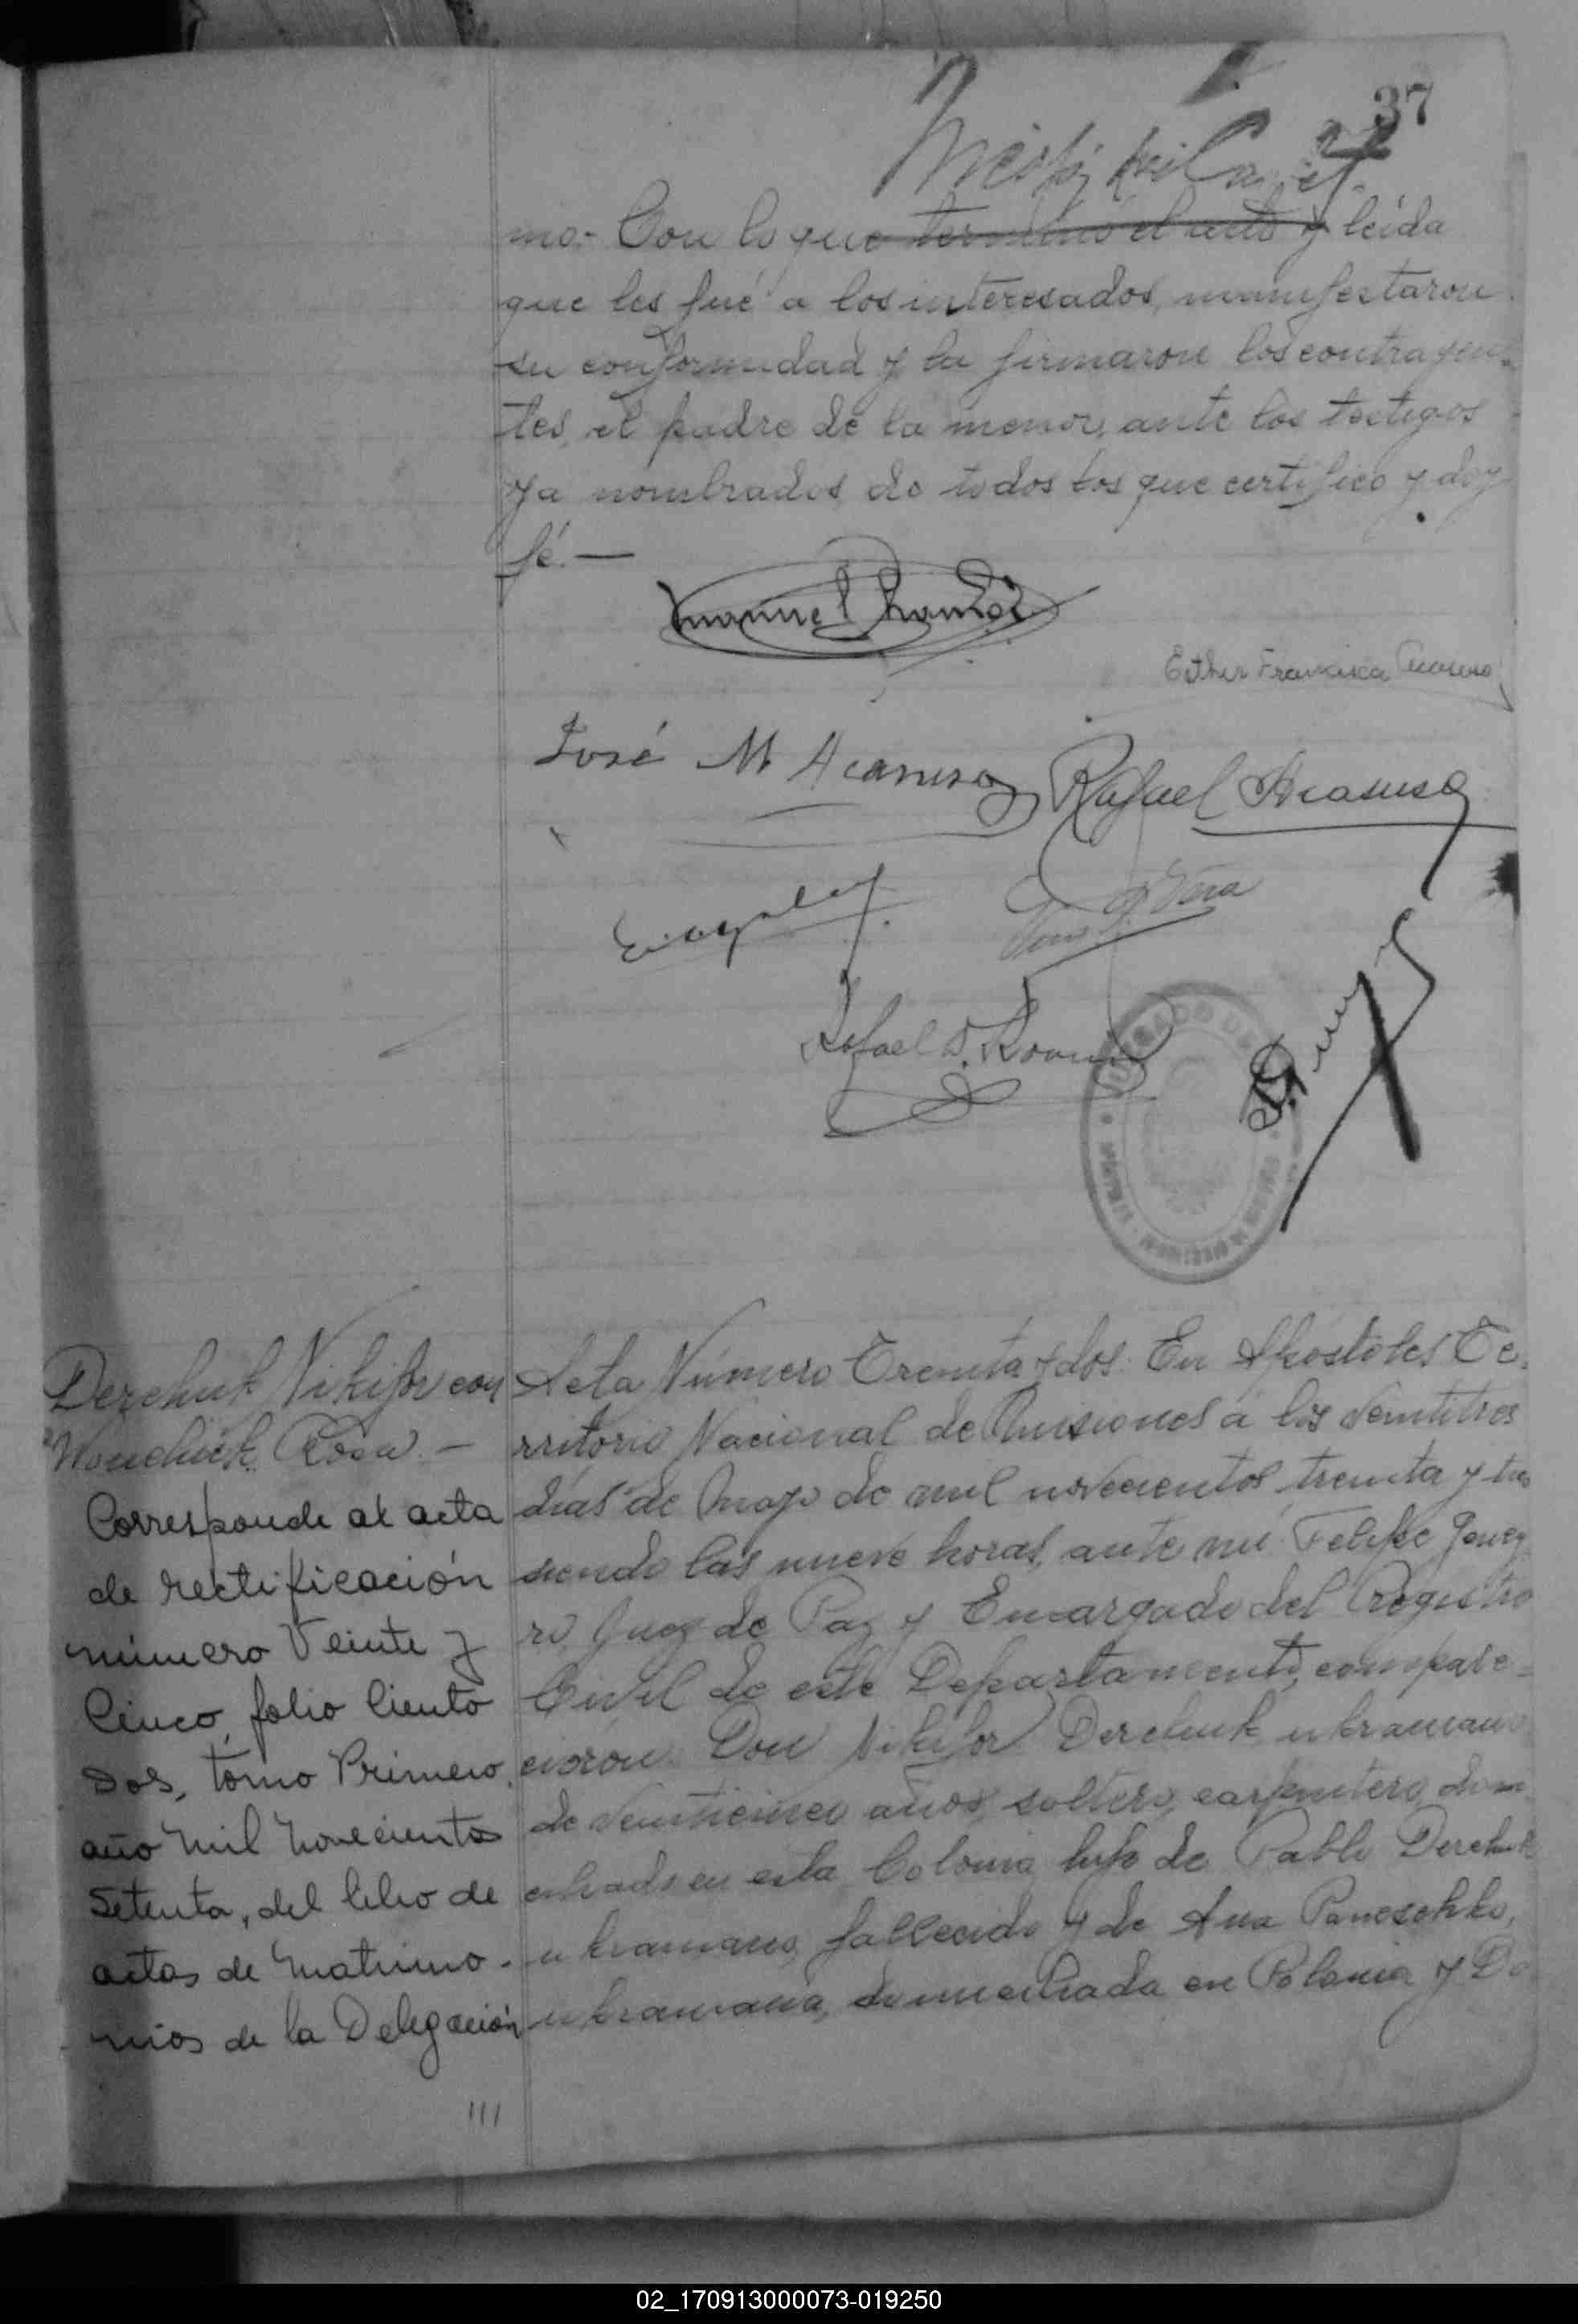 37
mo.- Con lo que terminó el acto y leída
que les fué a los interesados, manifestaron
su conformidad y la firmaron los contrayen-
tes, el padre de la menor, ante los testigos
ya nombrados, de todos los que certifico y doy
fé.—
Manuel
Esther Francisca
José M Acasuso Rafael Acasuso
Vera
Rafael D.
JUZGADO DE
Derchuk Nikifor con
Wonchick Rosa.-
Corresponde al acta
de rectificación
número Veinte y
Cinco, folio Ciento
Dos, tomo Primero,
año Mil Novecientos
Setenta, del libro de
actas de Matrimo-
nios de la Delegación
///
Acta Número Treinta y dos: En Apóstoles Te-
rritorio Nacional de Misiones a los veintitres
días de Mayo de mil novecientos treinta y tres
siendo las nueve horas, ante mí Felipe
ro, Juez de Paz y Encargado del Registro
Civil de este Departamento, compare-
cieron: Don Nikifor Derchuk, ukraniano
de veinticinco años, soltero, carpintero, domi
ciliado en esta Colonia, hijo de Pablo Derchuk
ukraniano, fallecido y de Ana Paneschko,
ukraniana, domiciliada en Polonia y Do
02_170913000073-019250